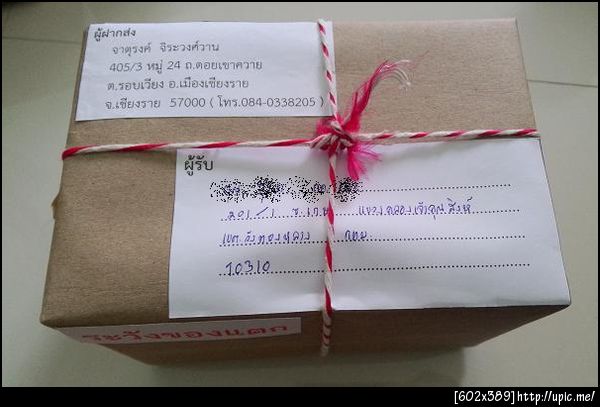 ผู้ฝากส่ง
จาตุรงค์ จิระวงศ์วาน
405/3 หมู่ 24 ถ.ดอยเขาควาย
ต.รอบเวียง อ.เมืองเชียงราย
จ.เชียงราย 57000 ( โทร.084-0338205 )
ผู้รับ
201/1 แขวงคลองเจ้าคุณสิงห์
เขตวังทองหลาง กทม.
10310
ระวังของแตก
[602x389]http://upic.me/